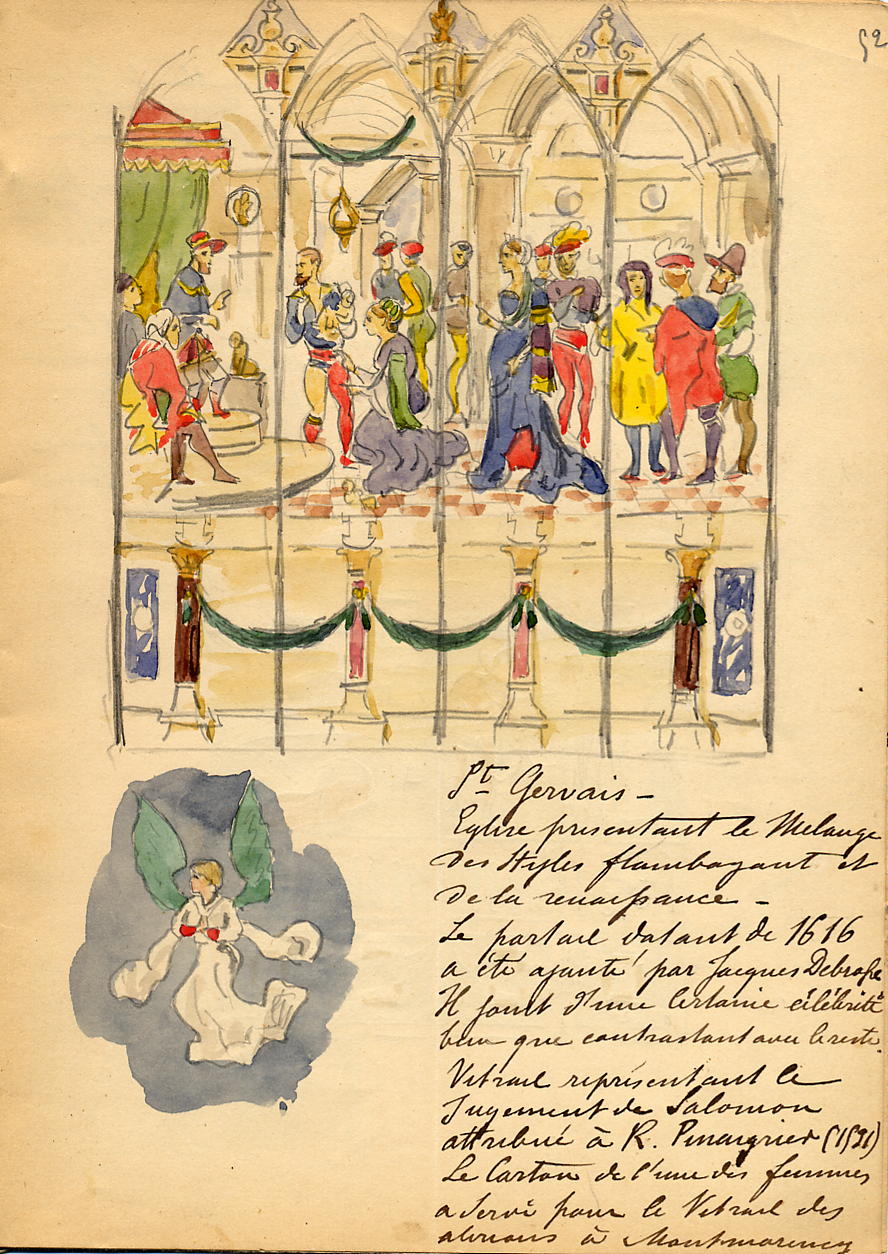 52
St Gervais –
Eglise présentant le Mélange
des styles flamboyant et
de la renaissance –
Le portail datant de 1616
a été ajouté par Jacques Debrosse
Il jouit d'une certaine célébrité
bien que contrastant avec le reste.
Vitrail représentant le
Jugement de Salomon
attribué à R. Pinaigrier (1531)
Le Carton de l'une des femmes
a servi pour le Vitrail des
alérions à Montmorency